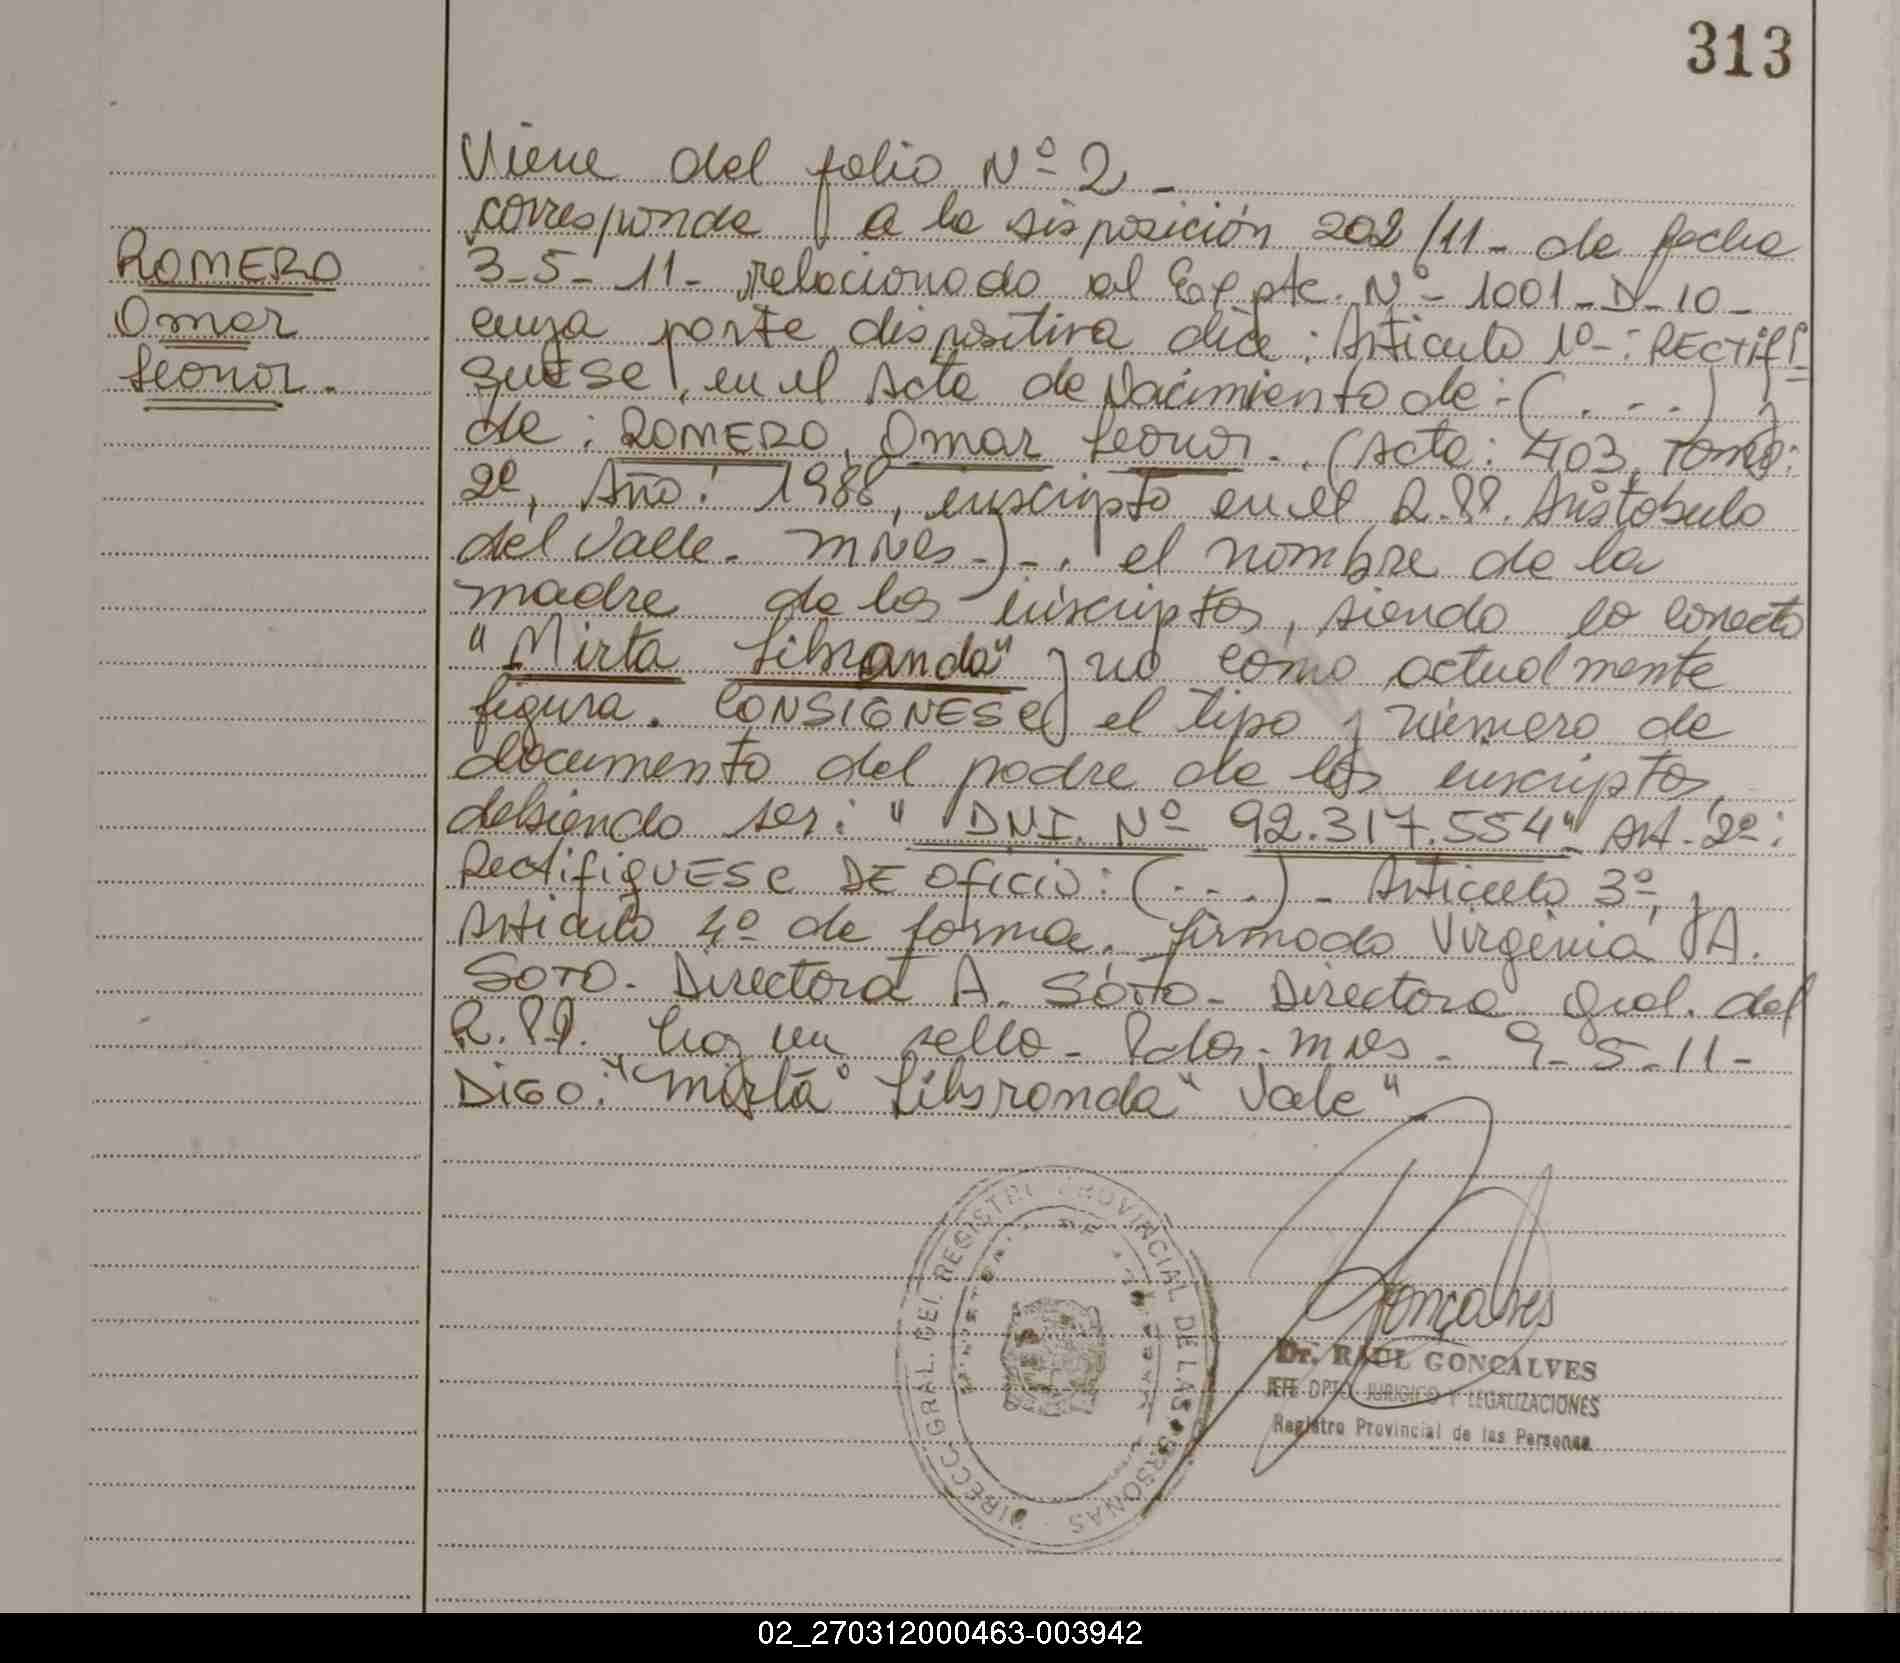 313
Viene del folio Nº 2 -
corresponde a la disposición 202/11 - de fecha
ROMERO
3-5-11- relacionado al Expte. Nº- 1001-D-10-
Omar
cuya parte dispositiva dice: Articulo 1º-: RECTIFI
Leonor.
QUESE, en el Acta de Nacimiento de: (. . .) y
de: ROMERO, Omar Leonor. (Acta: 403, Tomo:
2º, Año: 1988, inscripto en el R.PP. Aristobulo
del Valle. Mnes-)-. el nombre de la
madre de los inscriptos, siendo lo correcto
"Mirta Libranda" y no como actualmente
figura. CONSIGNESE el tipo y número de
documento del padre de los inscriptos,
debiendo ser: " DNI. Nº 92.317.554". Art. 2º:
RectifiQUESE DE OFICIO: (. . .) - Articulo 3º, y
Articulo 4º de forma. firmado Virginia A.
SOTO. Directora A. SOTO- Directora Gral. del
R.PP. hay un sello- Pdas-mnes- 9-5-11-
DIGO: "Mirta Libranda" Vale"
DIRECC. GRAL. DEL REGISTRO PROVINCIAL DE LAS PERSONAS
Goncalves
Dr. RAUL GONCALVES
JEFE DPTO. JURIDICO Y LEGALIZACIONES
Registro Provincial de las Personas
02_270312000463-003942